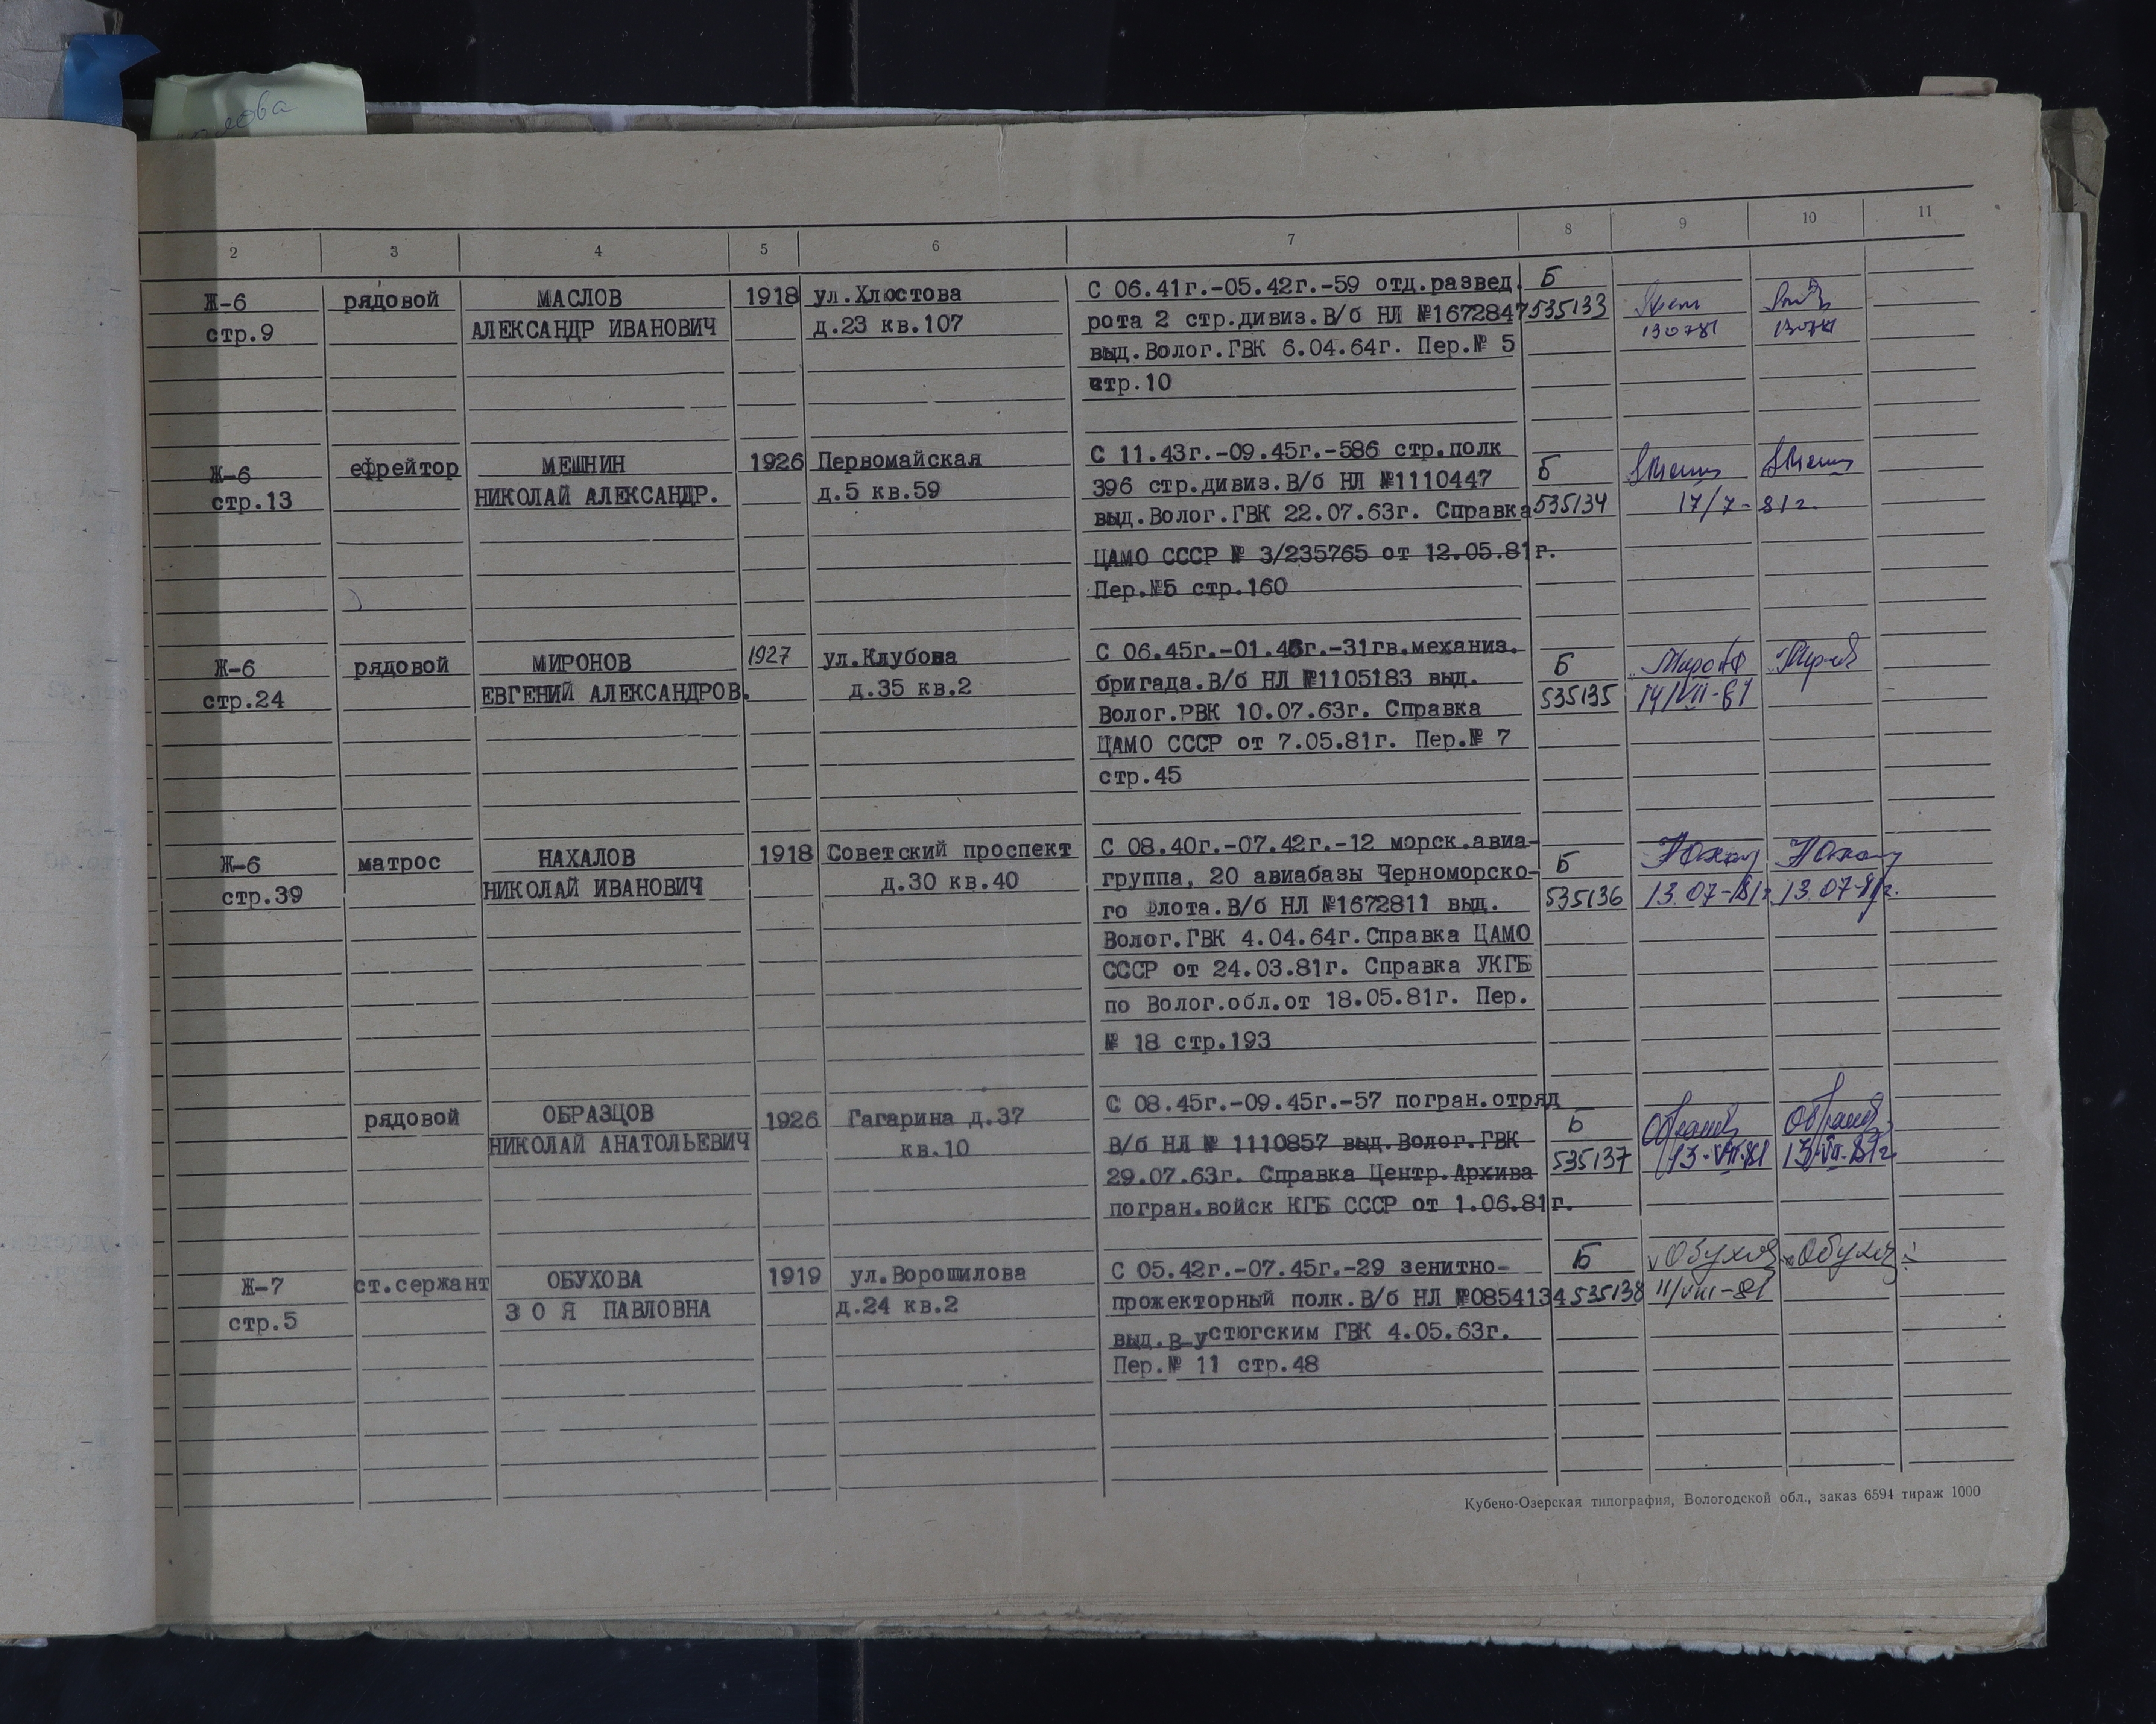 2 3 4 5 6 7 8 9 10 11
Ж-6 рядовой МАСЛОВ 1918 ул.Хлюстова С 06.41г.-05.42г.-59 отд.развед. Б
стр.9 АЛЕКСАНДР ИВАНОВИЧ д.23 кв.107 рота 2 стр.дивиз.В/б НЛ №1672847 535133
130781 130781
выд.Волог.ГВК 6.04.64г. Пер.№ 5
стр.10
Ж-6 ефрейтор МЕШНИН 1926 Первомайская С 11.43г.-09.45г.-586 стр.полк Б
стр.13 НИКОЛАЙ АЛЕКСАНДР. д.5 кв.59 396 стр.дивиз.В/б НЛ №1110447
выд.Волог.ГВК 22.07.63г. Справка 535134 17/7-81г.
ЦАМО СССР № 3/235765 от 12.05.81г.
Пер.№5 стр.160
Ж-6 рядовой МИРОНОВ 1927 ул.Клубова С 06.45г.-01.46г.-31гв.механиз. Б
стр.24 ЕВГЕНИЙ АЛЕКСАНДРОВ. д.35 кв.2 бригада.В/б НЛ №1105183 выд. 535135 14/VII-81
Волог.РВК 10.07.63г. Справка
ЦАМО СССР от 7.05.81г. Пер.№ 7
стр.45
Ж-6 матрос НАХАЛОВ 1918 Советский проспект С 08.40г.-07.42г.-12 морск.авиа- Б
стр.39 НИКОЛАЙ ИВАНОВИЧ д.30 кв.40 группа, 20 авиабазы Черноморско- 535136 13.07-81г. 13.07-81г.
го Флота.В/б НЛ №1672811 выд.
Волог.ГВК 4.04.64г.Справка ЦАМО
СССР от 24.03.81г. Справка УКГБ
по Волог.обл.от 18.05.81г. Пер.
№ 18 стр.193
рядовой ОБРАЗЦОВ 1926 Гагарина д.37 С 08.45г.-09.45г.-57 погран.отряд Б
НИКОЛАЙ АНАТОЛЬЕВИЧ кв.10 В/б НЛ № 1110857 выд.Волог.ГВК 535137 13-VII-81 13-VII-81г.
29.07.63г. Справка Центр.Архива
погран.войск КГБ СССР от 1.06.81г.
Ж-7 ст.сержант ОБУХОВА 1919 ул.Ворошилова С 05.42г.-07.45г.-29 зенитно- Б
стр.5 ЗОЯ ПАВЛОВНА д.24 кв.2 прожекторный полк.В/б НЛ №0854134 535138 11/VIII-81
выд.В-Устюгским ГВК 4.05.63г.
Пер.№ 11 стр.48
Кубено-Озерская типография, Вологодской обл., заказ 6594 тираж 1000